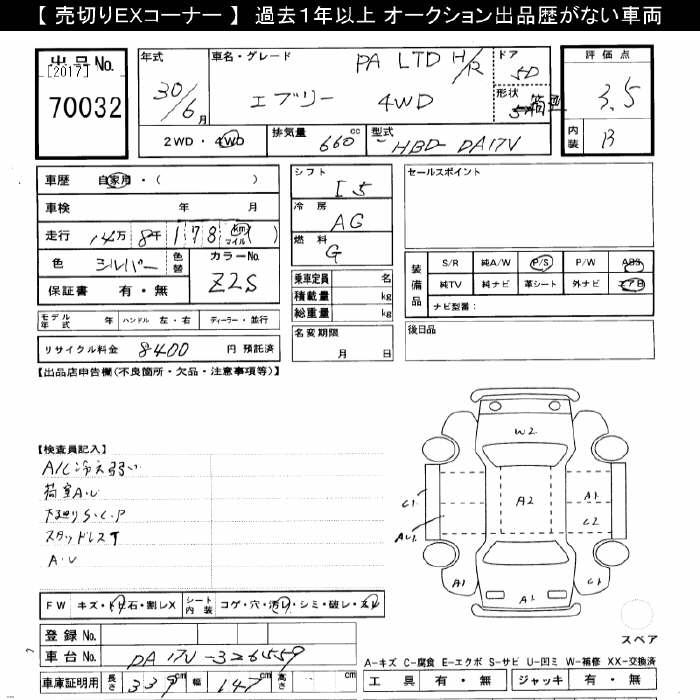 【 売切りEXコーナー 】 過去1年以上 オークション出品歴がない車両
出品No.
[2017]
70032
年式
30/6月
車名・グレード
PA LTD H/R
エブリー 4WD
ドア
5D
形状
評価点
3.5
内装
B
2WD・4WD
排気量
660cc
型式
HBD- DA17V
車歴 自家用・( )
車検 年 月
走行 14万 8千 1 7 8 (km マイル)
色 シルバー
色替
カラーNo.
Z2S
保証書 有・無
モデル年式 年 ハンドル 左・右 ディーラー・並行
リサイクル料金 8400 円 預託済
シフト
I5
冷房
AG
燃料
G
乗車定員 名
積載量 kg
総重量 kg
名変期限
月 日
セールスポイント
装備品
S/R 純A/W P/S P/W ABS
純TV 純ナビ 革シート 外ナビ エアB
ナビ型番：
後日品
【出品店申告欄(不良箇所・欠品・注意事項等)】
【検査員記入】
A/C冷え弱い
荷室A・U
下廻りS・C・P
スタッドレスT
A・U
FW キズ・トビ石・割レX
シート内装 コゲ・穴・汚レ・シミ・破レ・スレ
登録No.
車台No. DA17V-326559
車庫証明用 長さ 339cm 幅 147cm 高さ cm
W2
A2
A1
C2
C1
A1
C1
スペア
A-キズ C-腐食 E-エクボ S-サビ U-凹ミ W-補修 XX-交換済
工具 有・無 ジャッキ 有・無